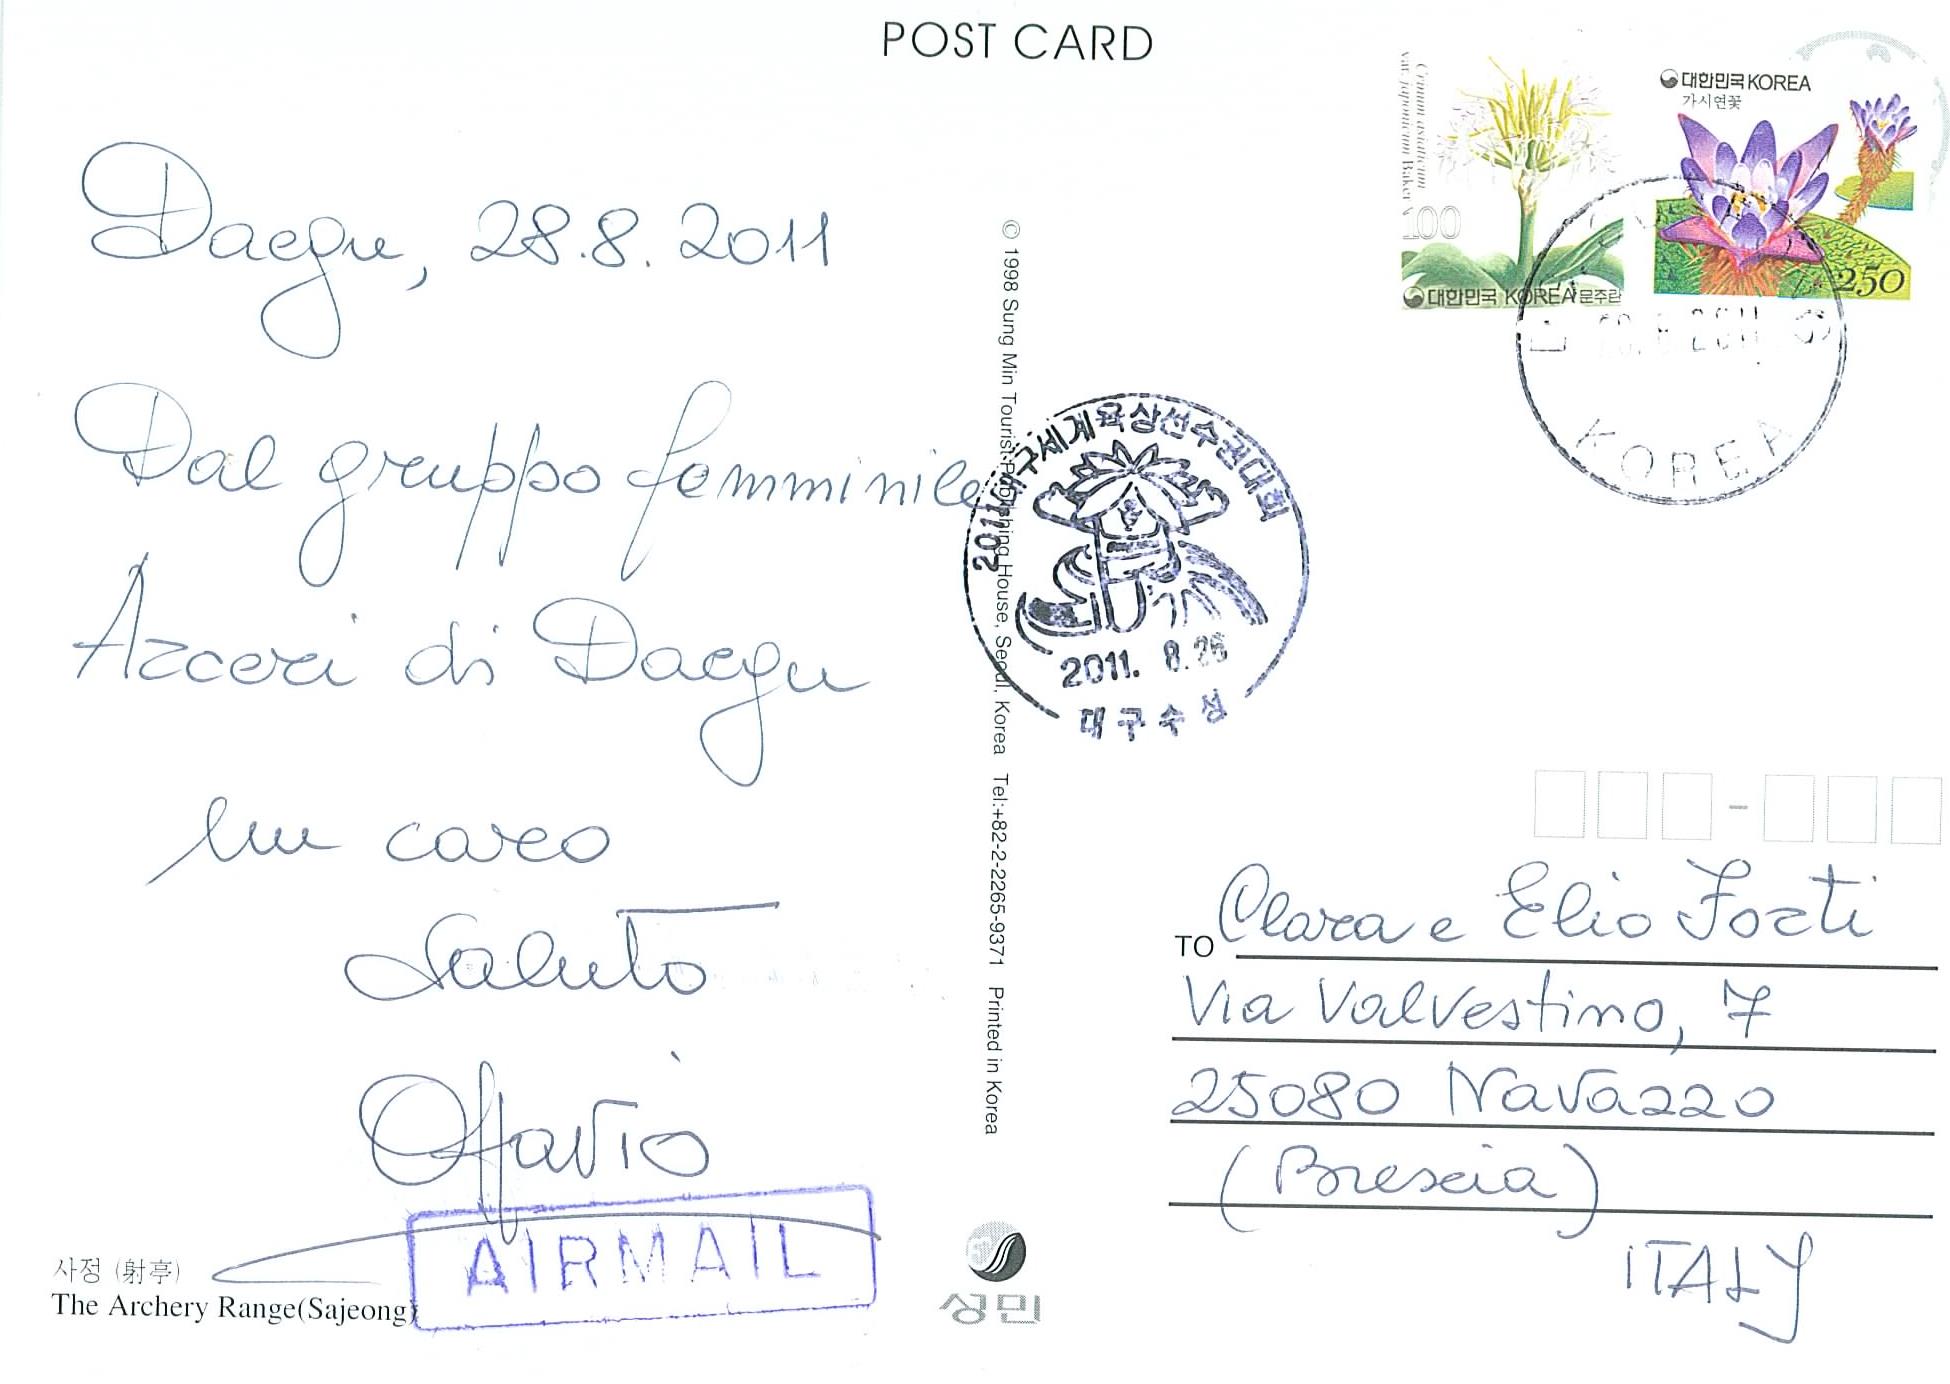 POST CARD
Daegu, 28.8.2011
Dal gruppo femminile
Arceri di Daegu
Un caro
Saluto
Ottavio
AIRMAIL
사정 (射亭)
The Archery Range(Sajeong)
© 1998 Sung Min Tourist Publishing House, Seoul, Korea Tel:+82-2-2265-9371 Printed in Korea
성민
2011대구세계육상선수권대회
2011. 8.26
대구수성
Crinum asiaticum
var. japonicum Baker
100
대한민국 KOREA 문주란
대한민국 KOREA
가시연꽃
250
2011
KOREA
TO Clara e Elio Forti
Via Valvestino, 7
25080 Navazzo
(Brescia)
ITALY